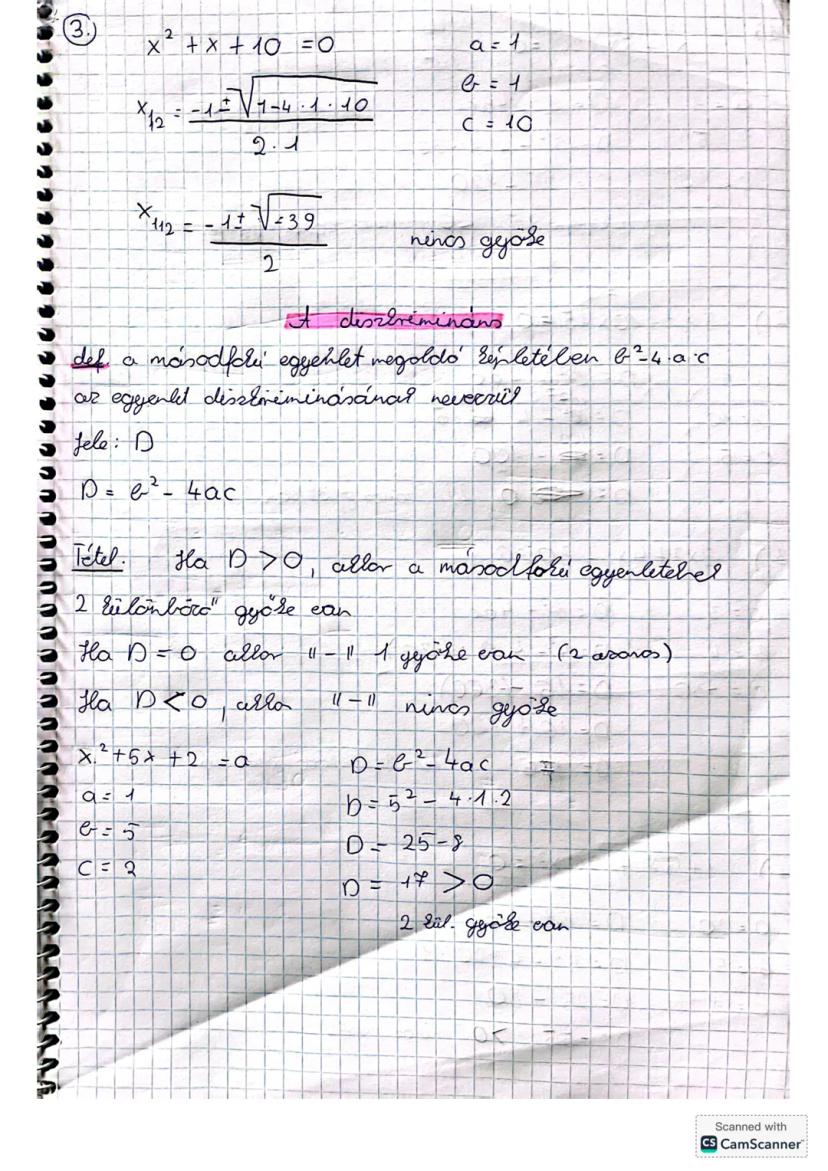 3.)
x² + x + 10 = 0
a = 1
x₁₂ = (-1 ± √(1-4·1·10)) / (2·1)
b = 1
c = 10
x₁,₂ = (-1 ± √(-39)) / 2
nincs gyöke
A diszkrimináns
def. a másodfokú egyenlet megoldó képletében b²-4·a·c
az egyenlet diszkriminásának nevezzük
Jele: D
D = b² - 4ac
Tétel. Ha D > 0, akkor a másodfokú egyenletekel
2 különböző gyöke van
Ha D = 0 akkor "-" 1 gyöke van (2 azonos)
Ha D < 0, akko "-" nincs gyöke
x² + 5x + 2 = 0
D = b² - 4ac
a = 1
D = 5² - 4·1·2
b = 5
D = 25 - 8
c = 2
D = 17 > 0
2 kül. gyöke van
Scanned with
CS CamScanner